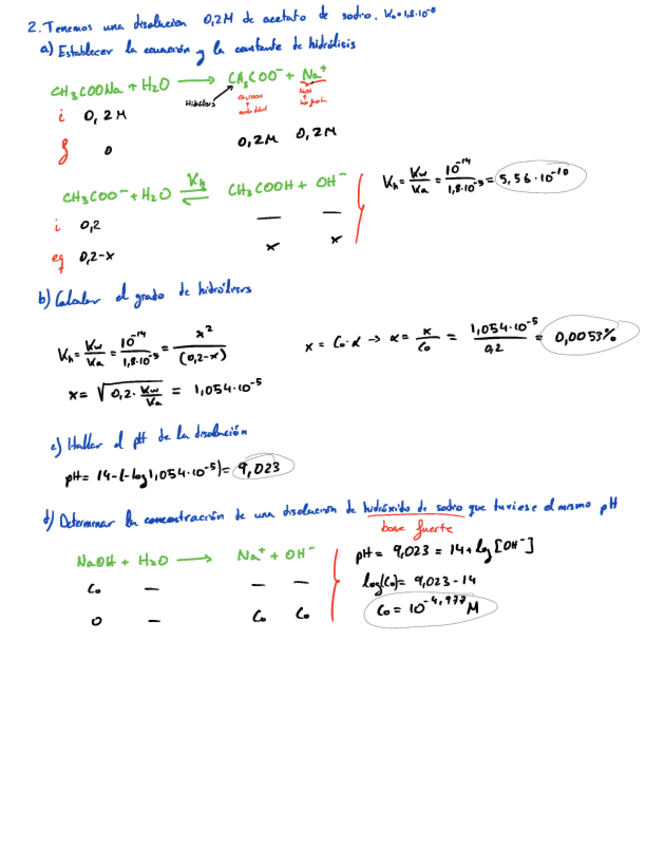 2. Tenemos una disolución 0,2M de acetato de sodio. Ka = 1,8·10⁻⁵
a) Establecer la ecuación y la constante de hidrólisis
CH₃COONa + H₂O → CH₃COO⁻ + Na⁺
Hidrólisis
i 0,2M
f 0 0,2M 0,2M
CH₃COO⁻ + H₂O ⇌ CH₃COOH + OH⁻
Kh
i 0,2 — —
eq 0,2-x x x
Kh = Kw/Ka = 10⁻¹⁴/1,8·10⁻⁵ = 5,56·10⁻¹⁰
b) Calcular el grado de hidrólisis
Kh = Kw/Ka = 10⁻¹⁴/1,8·10⁻⁵ = x²/(0,2-x)
x = √(0,2·Kw/Ka) = 1,054·10⁻⁵
x = Co·α → α = x/Co = 1,054·10⁻⁵/0,2 = 0,0053%
c) Hallar el pH de la disolución
pH = 14-(-log 1,054·10⁻⁵) = 9,023
d) Determinar la concentración de una disolución de hidróxido de sodio que tuviese el mismo pH
base fuerte
NaOH + H₂O → Na⁺ + OH⁻
Co — — —
0 — Co Co
pH = 9,023 = 14 + log [OH⁻]
log(Co) = 9,023 - 14
Co = 10⁻⁴,⁹⁷⁷ M